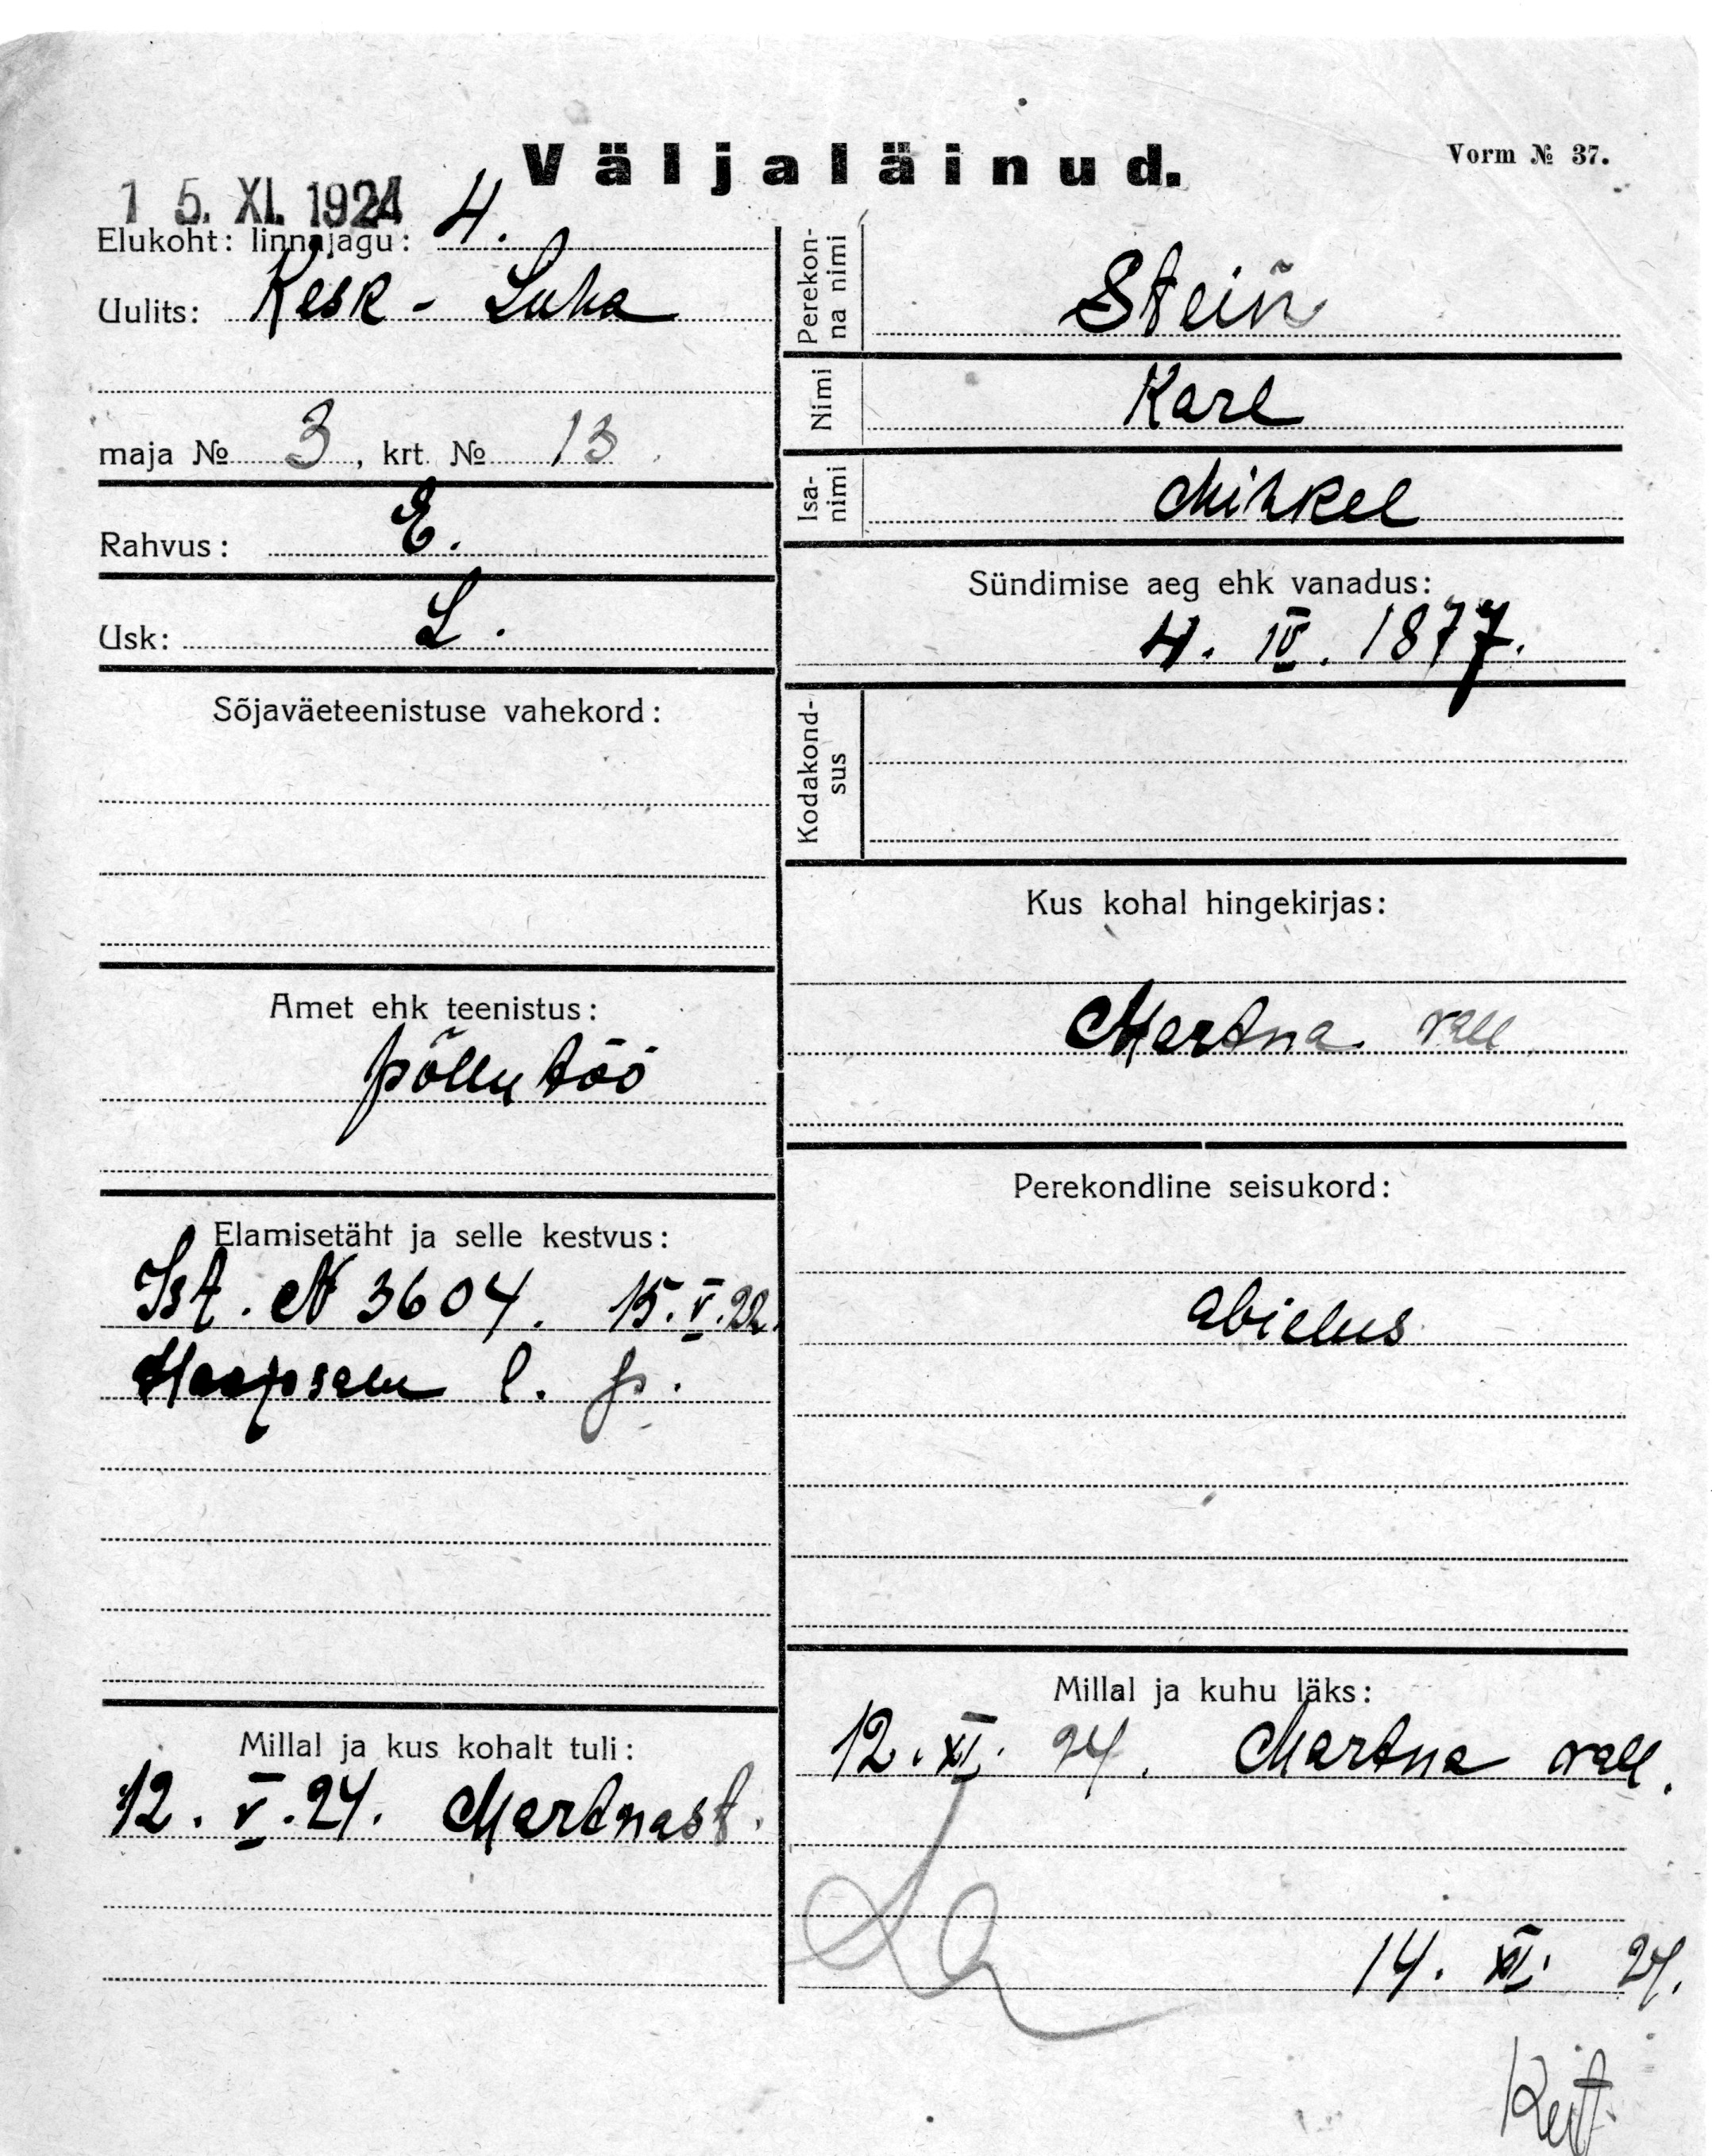 Väljaläinud.
Vorm № 37.
15. XI. 1924
Elukoht: linnajagu: 4.
Uulits: Kesk - Luha
maja № 3, krt. № 13.
Rahvus: E.
Usk: L.
Sõjaväeteenistuse vahekord:
Amet ehk teenistus:
põllutöö
Elamisetäht ja selle kestvus:
Ist. N 3604. 15.V.22.
Haapsalu l. p.
Millal ja kus kohalt tuli:
12. V. 24. Martnast.
Perekon-
na nimi
Stein
Nimi
Karl
Isa-
nimi
Mihkel
Sündimise aeg ehk vanadus:
4. IV. 1877.
Kodakond-
sus
Kus kohal hingekirjas:
Martna vall
Perekondline seisukord:
abielus
Millal ja kuhu läks:
12. XI. 24. Martna vall.
14. XI. 24.